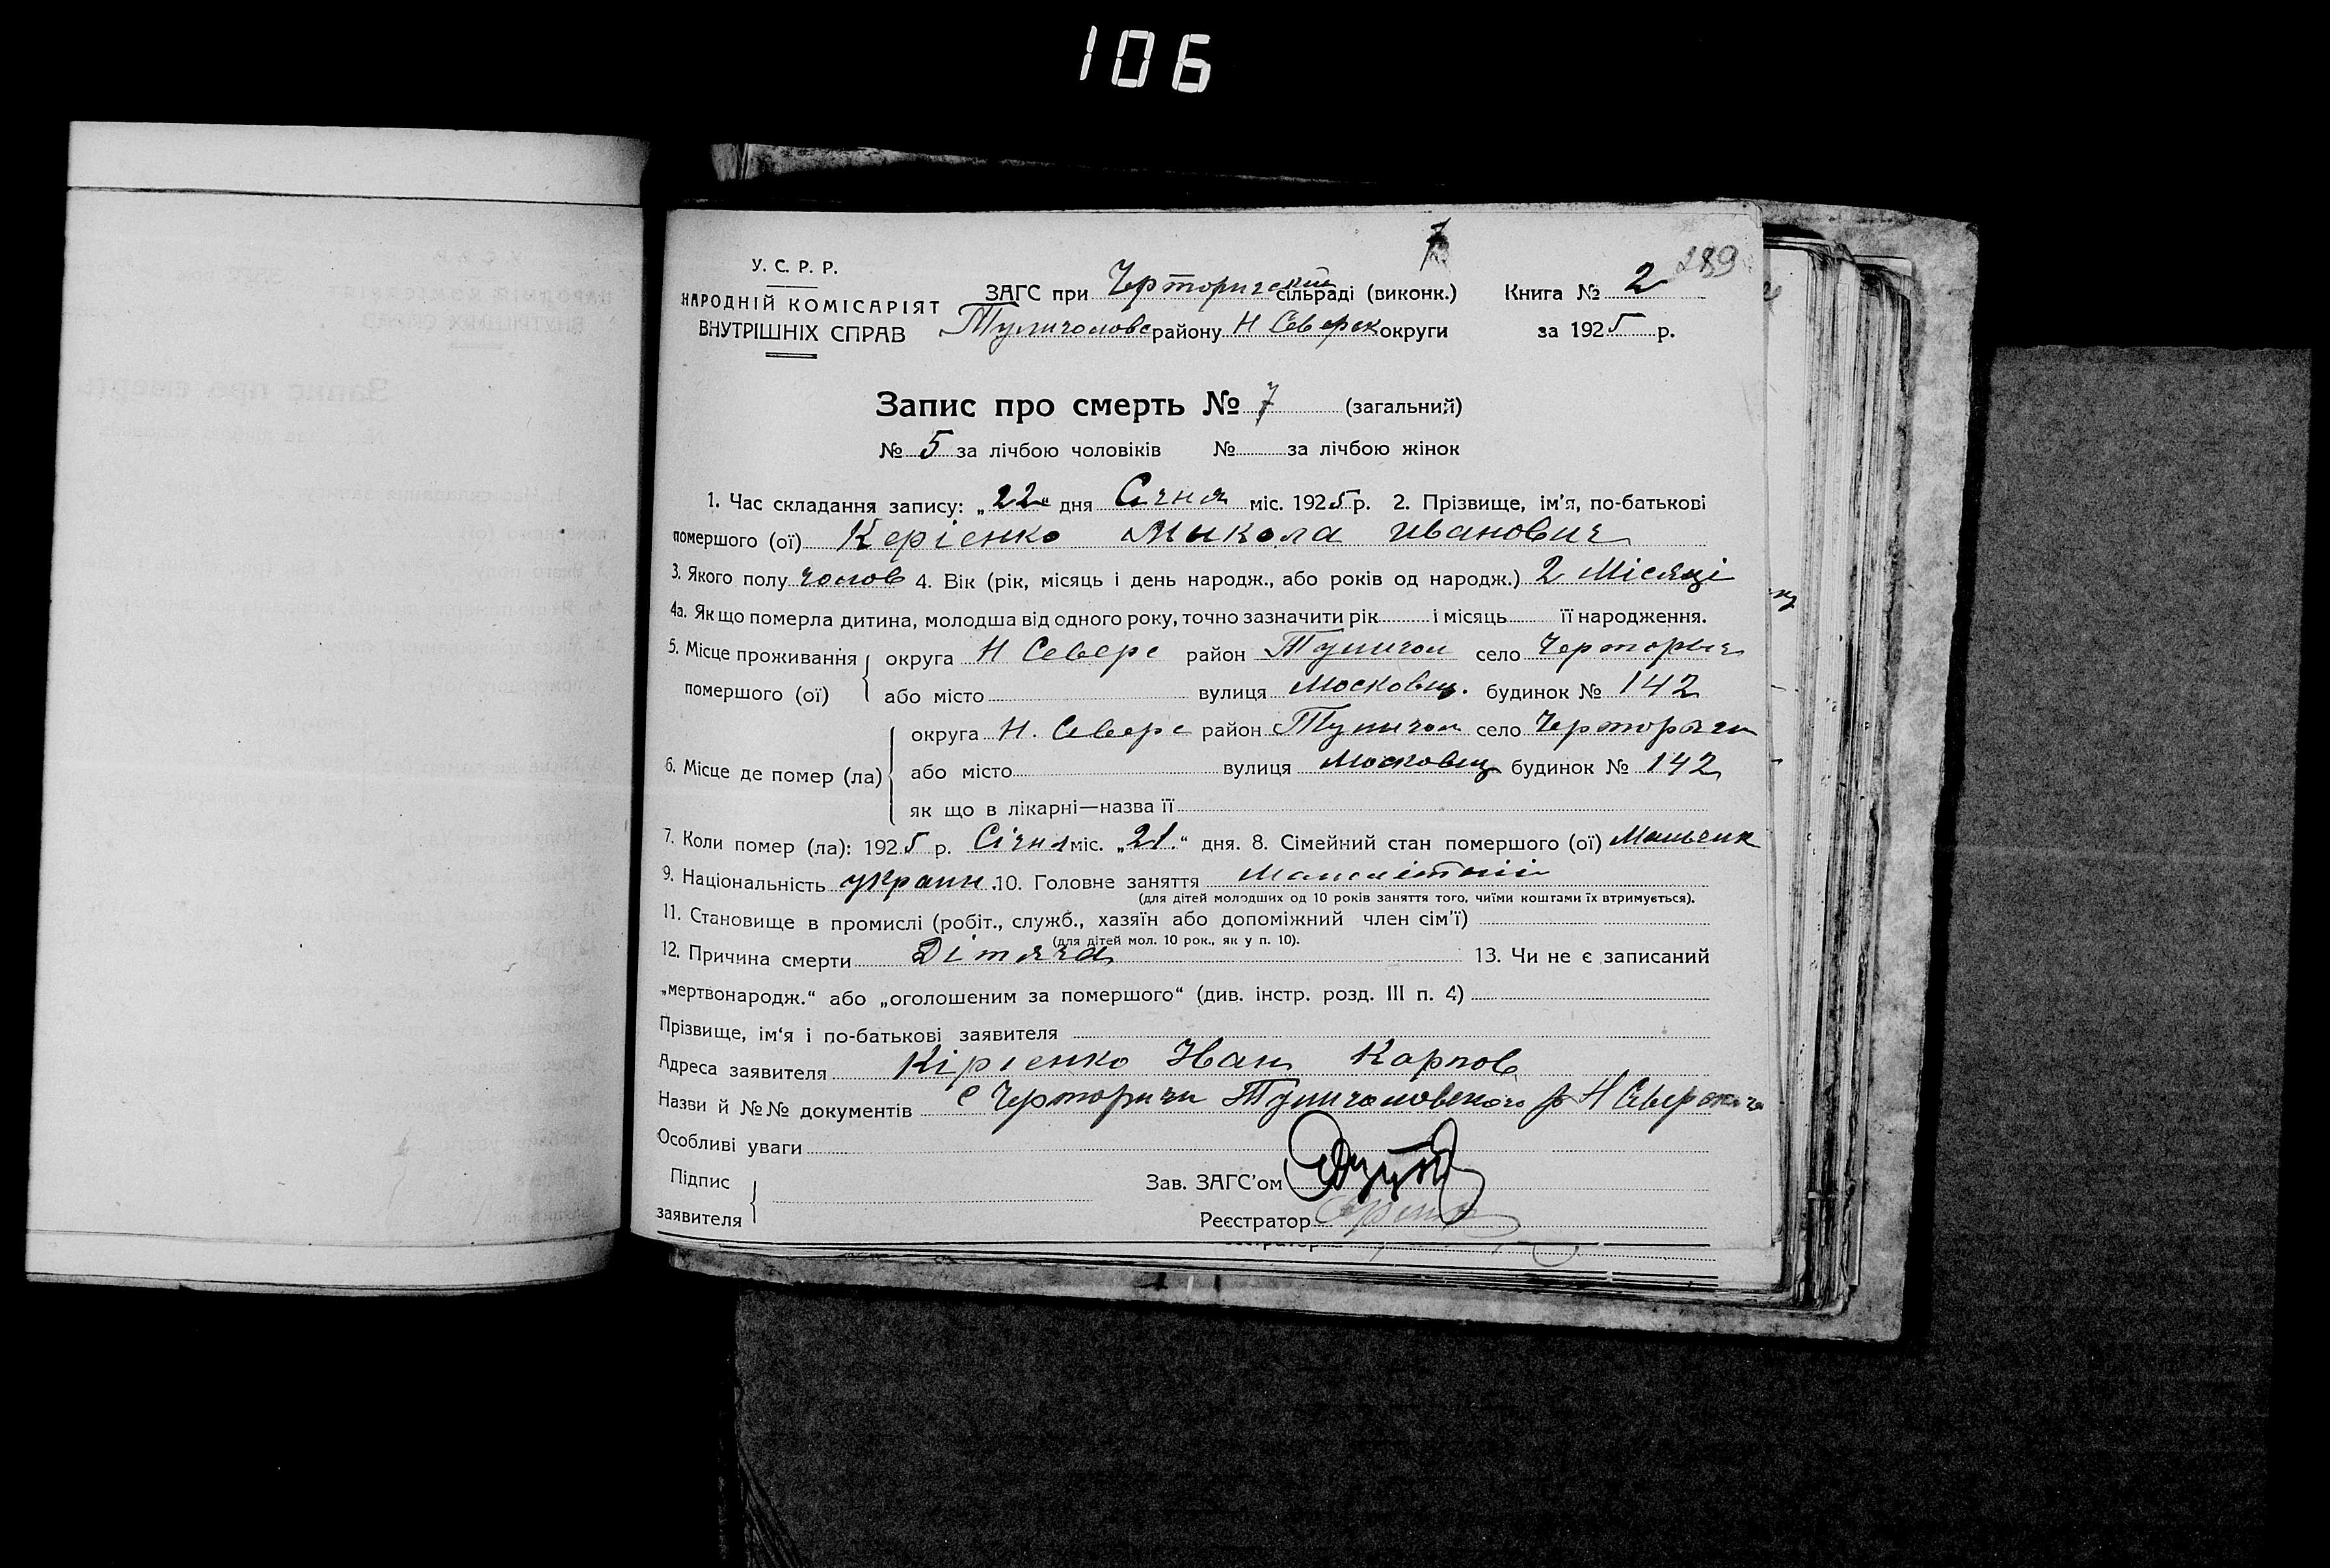 106
289
У. С. Р. Р.
НАРОДНІЙ КОМІСАРІЯТ
ВНУТРІШНІХ СПРАВ
ЗАГС при Черторигский сільраді (виконк.) Книга № 2
району Н Северск округи за 1925 р.
Запис про смерть № 7 (загальний)
№ 5 за лічбою чоловіків № за лічбою жінок
1. Час складання запису: „22“ дня Січня міс. 1925 р. 2. Прізвище, ім'я, по-батькові
помершого (ої) Керіенко Микола Иванович
3. Якого полу чолов 4. Вік (рік, місяць і день народж., або років од народж.) 2 Місяці
4а. Як що померла дитина, молодша від одного року, точно зазначити рік і місяць її народження.
5. Місце проживання округа Н Северс район село
помершого (ої) або місто вулиця будинок № 142
округа Н. Северс район село
6. Місце де помер (ла) або місто вулиця будинок № 142
як що в лікарні—назва її
7. Коли помер (ла): 1925 р. Січня міс. „21.“ дня. 8. Сімейний стан помершого (ої)
9. Національність украин. 10. Головне заняття
(для дітей молодших од 10 років заняття того, чиїми коштами їх втримується).
11. Становище в промислі (робіт., служб., хазяїн або допоміжний член сім'ї)
(для дітей мол. 10 рок., як у п. 10).
12. Причина смерти Дітяча 13. Чи не є записаний
„мертвонародж.“ або „оголошеним за помершого“ (див. інстр. розд. III п. 4)
Прізвище, ім'я і по-батькові заявителя
Адреса заявителя Кіріенко Иван Карпов
Назви й №№ документів с Черториги
Особливі уваги
Підпис
заявителя
Зав. ЗАГС'ом
Реєстратор